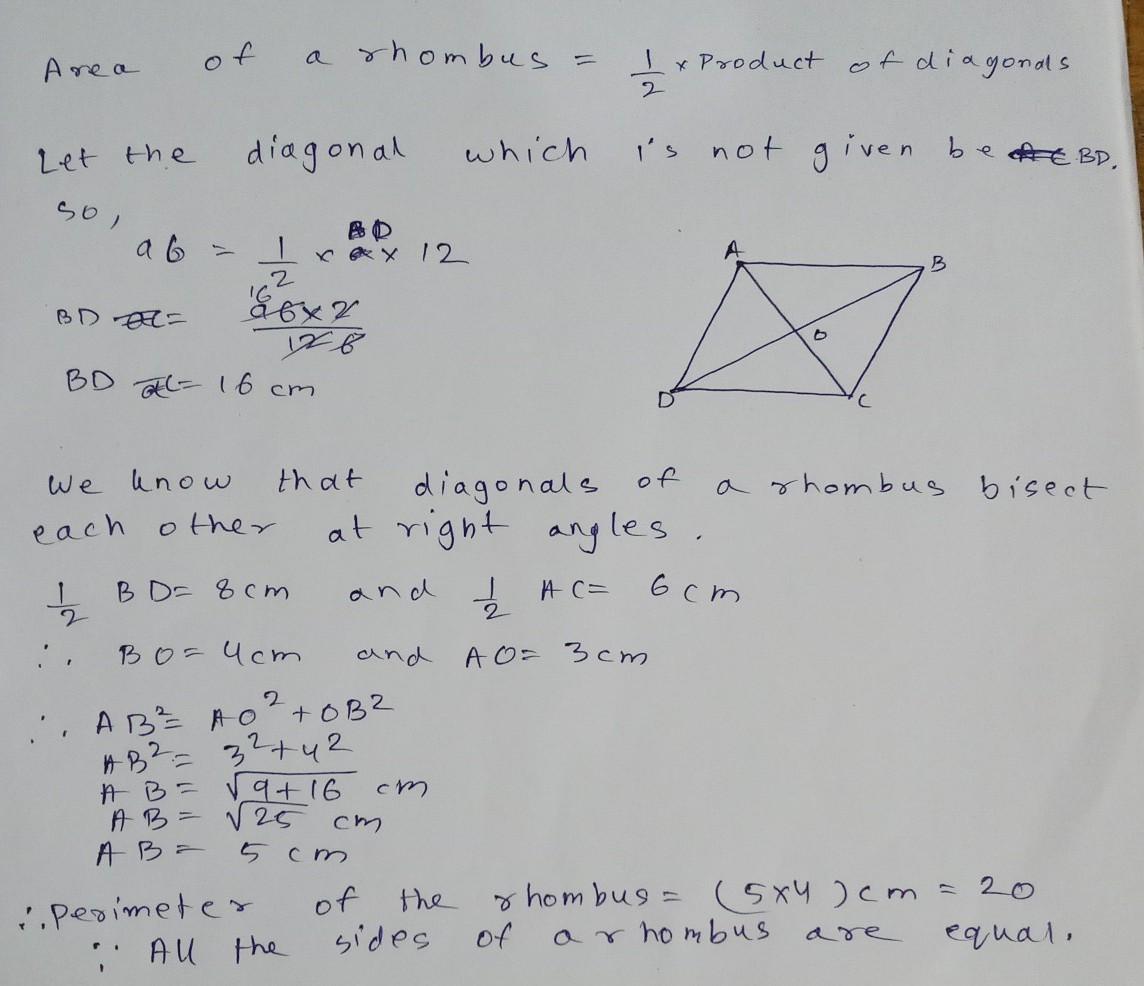 Area of a rhombus = 1/2 × Product of diagonals
Let the diagonal which is not given be BD.
so,
96 = 1/2 × BD × 12
BD = 96 × 2 / 12 6
16
BD = 16 cm
A
B
O
D
C
We know that diagonals of a rhombus bisect
each other at right angles.
1/2 BD = 8 cm and 1/2 AC = 6 cm
∴ BO = 4 cm and AO = 3 cm
∴ AB² = AO² + OB²
AB² = 3² + 4²
AB = √9+16 cm
AB = √25 cm
AB = 5 cm
∴ perimeter of the rhombus = (5×4) cm = 20
∵ All the sides of a rhombus are equal.